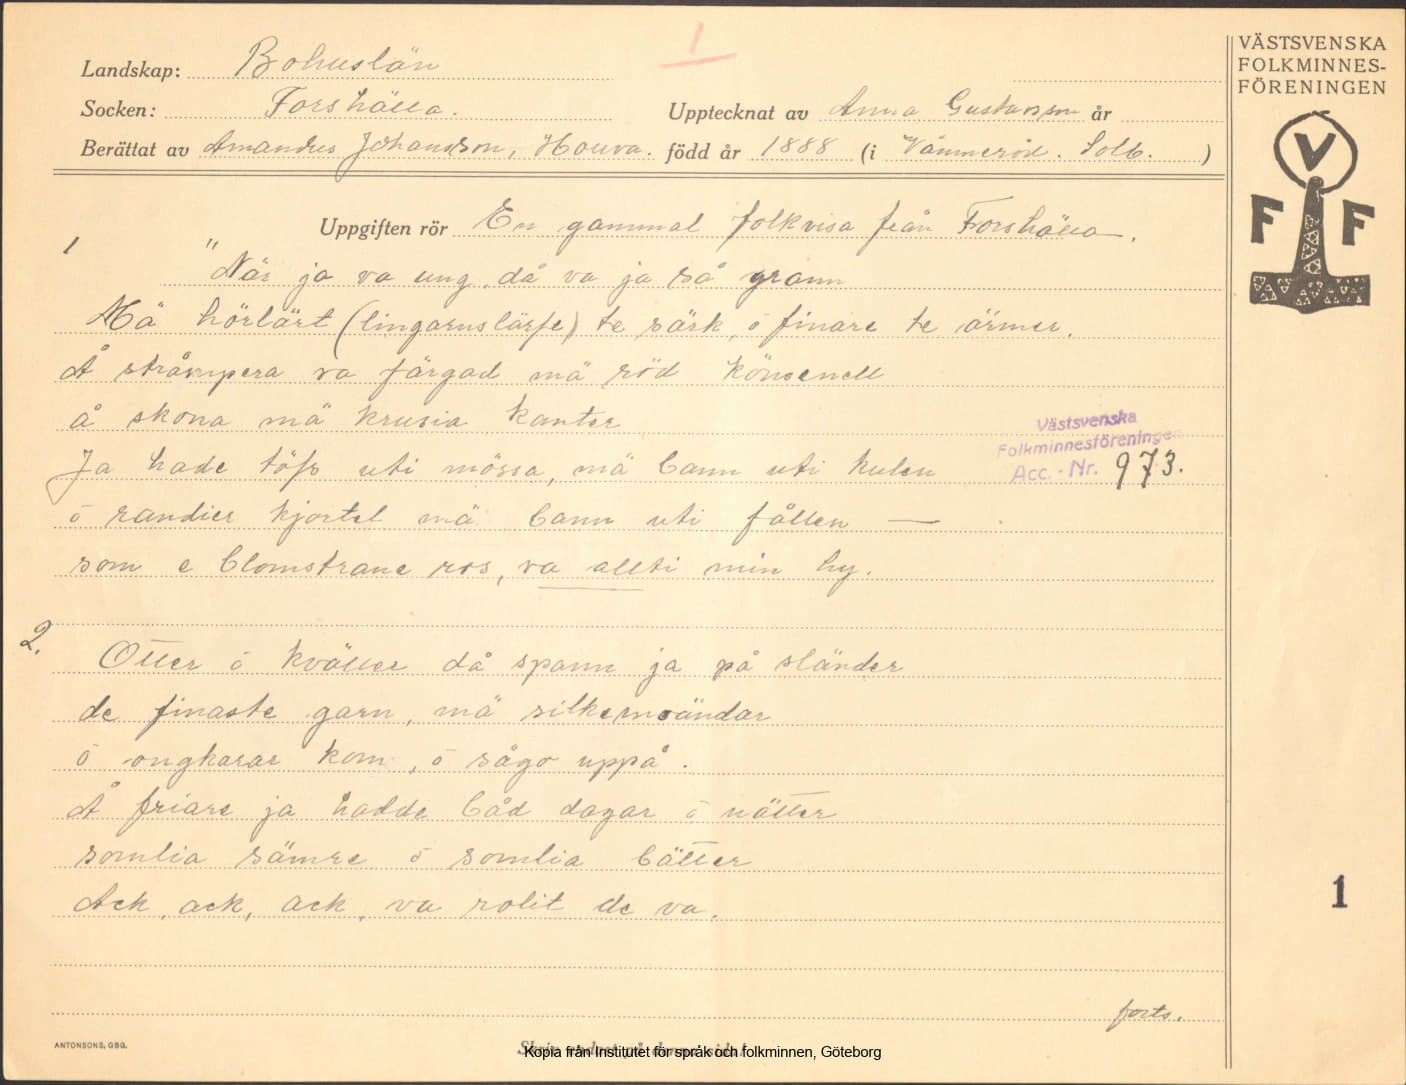 1
Landskap: Bohuslän
Socken: Forshälla.
Upptecknat av Anna Gustavsson år
Berättat av Amandus Johansson, Houva. född år 1888 (i Vämmeröd. Solb. )
VÄSTSVENSKA
FOLKMINNES-
FÖRENINGEN
V
F F
Uppgiften rör En gammal folkvisa från Forshälla.
1
"När ja va ung, då va ja så grann
Mä hörlärt (lingarnslärft) te särk, ö finare te ärmer.
Å ståmpera va färgad mä röd könsenell
å skona mä krusia kanter
Ja hade töfs uti mössa, mä bann uti kulen
ö randier kjortel mä bann uti fållen —
som e blomstrane ros, va allti min hy.
Västsvenska
Folkminnesföreningen
Acc. - Nr. 973.
2.
Otter ö kvätter då spann ja på sländer
de finaste garn, mä silkesmoändar
ö ongkarar kom, ö sågo uppå.
Å friare ja hadde båd dagar ö nätter
somlia sämre ö somlia bätter
Ack, ack, ack, va rolit de va.
1
forts.
ANTONSONS, GBG.
Skriv endast på denna sida!
Kopia från Institutet för språk och folkminnen, Göteborg